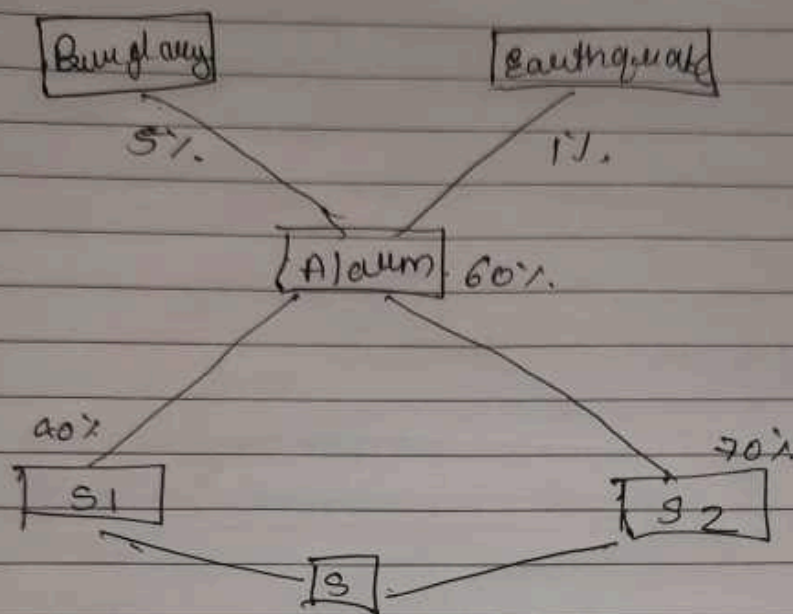 Burglary Earthquake
5%. 1%.
Alarm 60%.
90% 70%
S1 S2
S